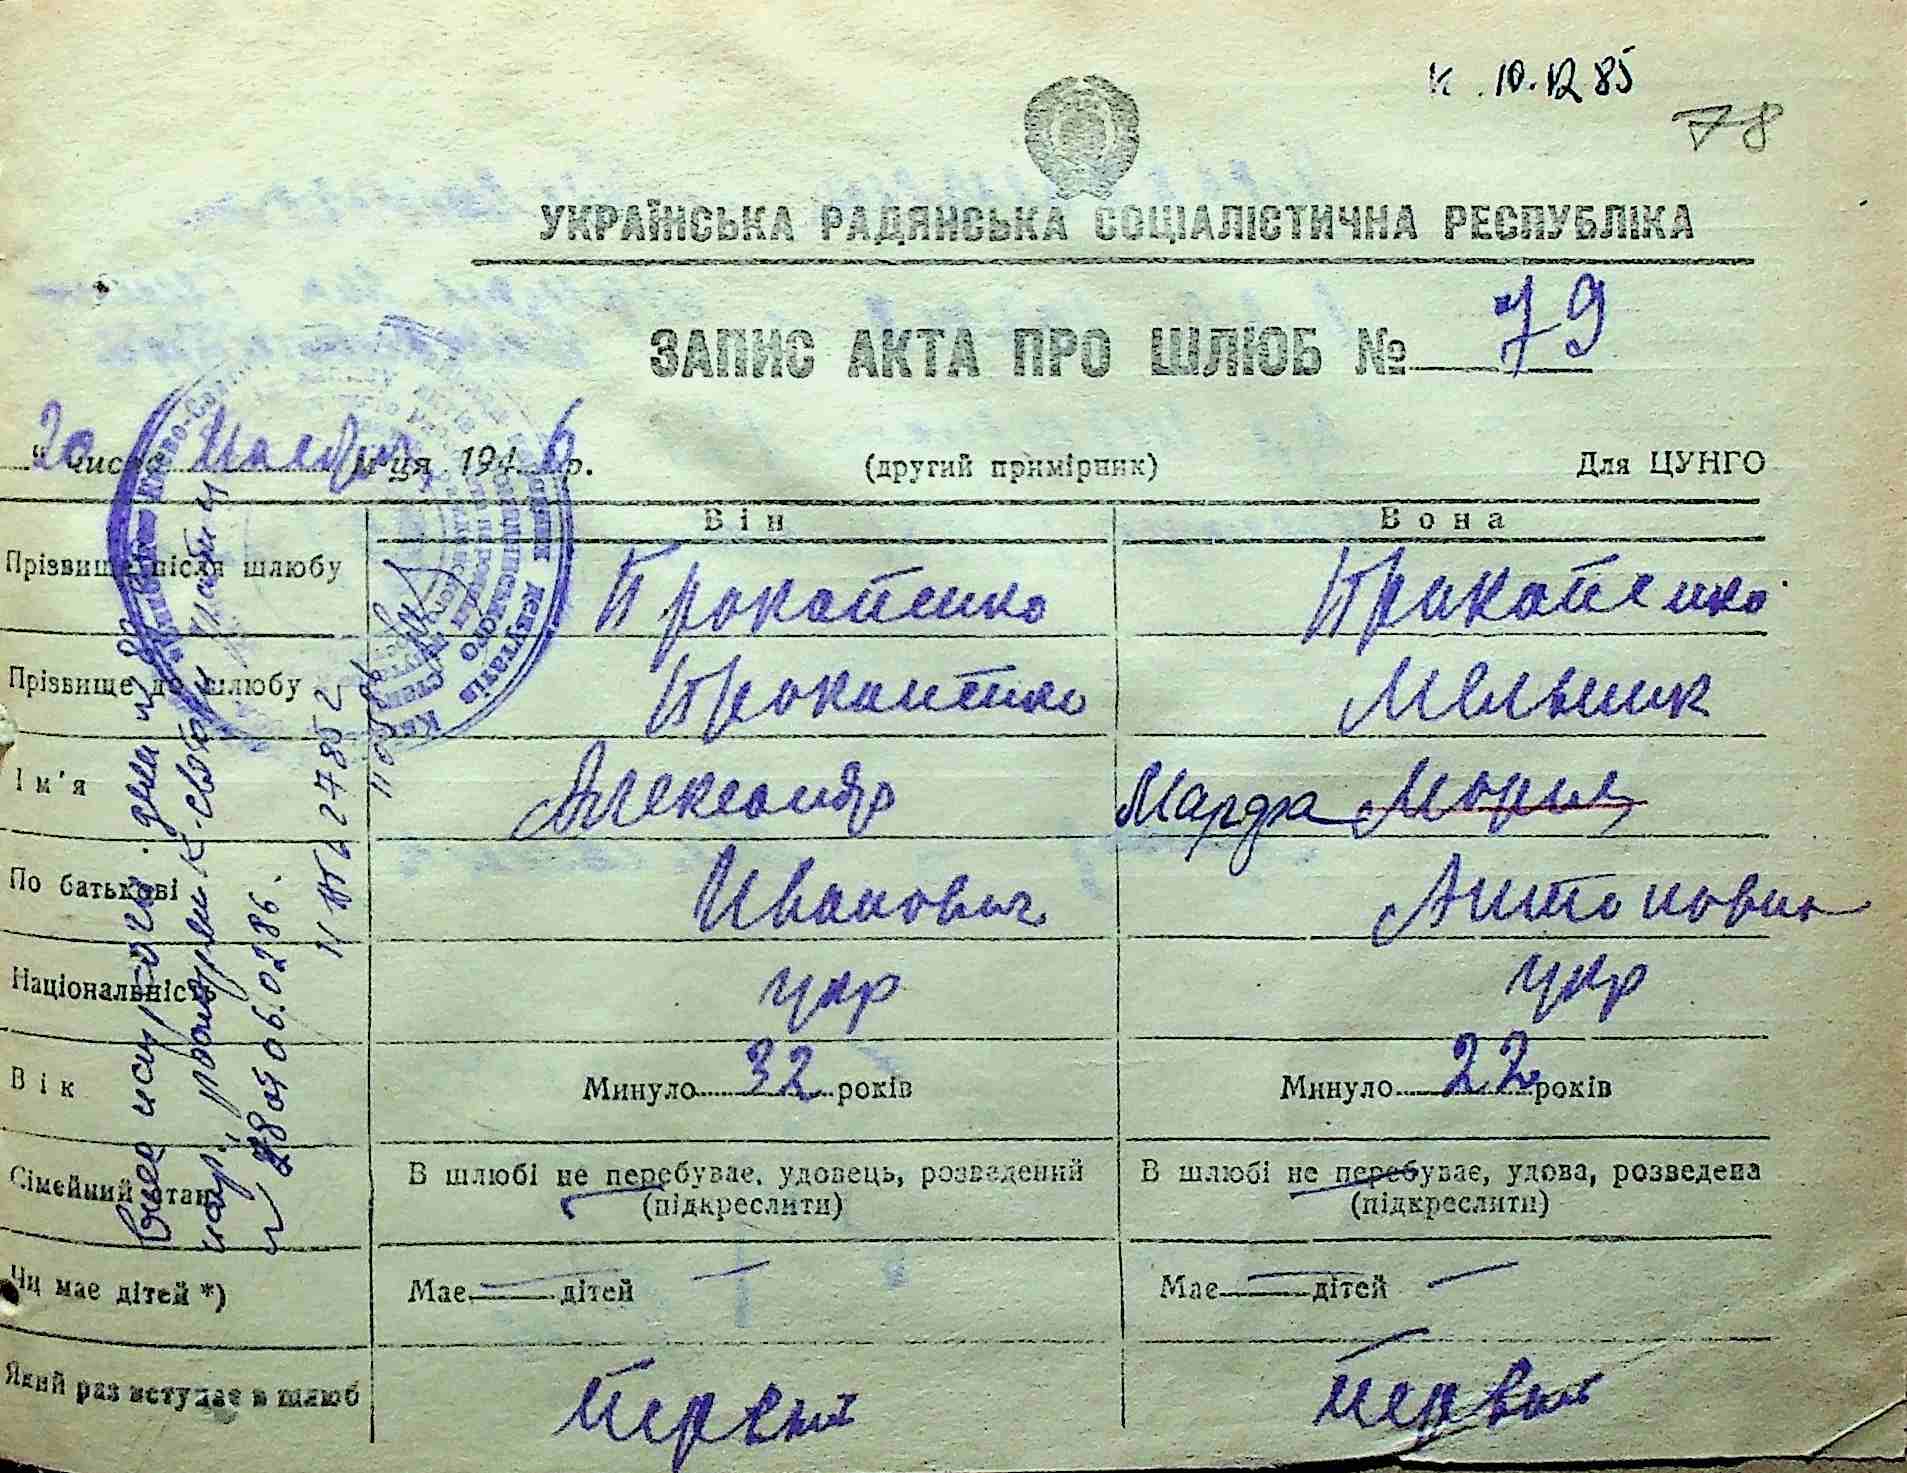 К. 10.12 85
78
УКРАЇНСЬКА РАДЯНСЬКА СОЦІАЛІСТИЧНА РЕСПУБЛІКА
ЗАПИС АКТА ПРО ШЛЮБ № 79
"20 числа м-ця 1946 р. (другий примірник) Для ЦУНГО
Він Вона
Прізвище після шлюбу Прокопенко Прокопенко
Прізвище до шлюбу Прокопенко Мельник
Ім'я Александр Марфа Мария
По батькові Иванович Антоновна
Національність укр укр
Вік Минуло 32 років Минуло 22 років
Сімейний стан В шлюбі не перебуває, удовець, розведений В шлюбі не перебуває, удова, розведена
(підкреслити) (підкреслити)
Чи має дітей *) Має — дітей — Має — дітей —
Який раз вступає в шлюб Первый Первый
от 06.02.86.
27852